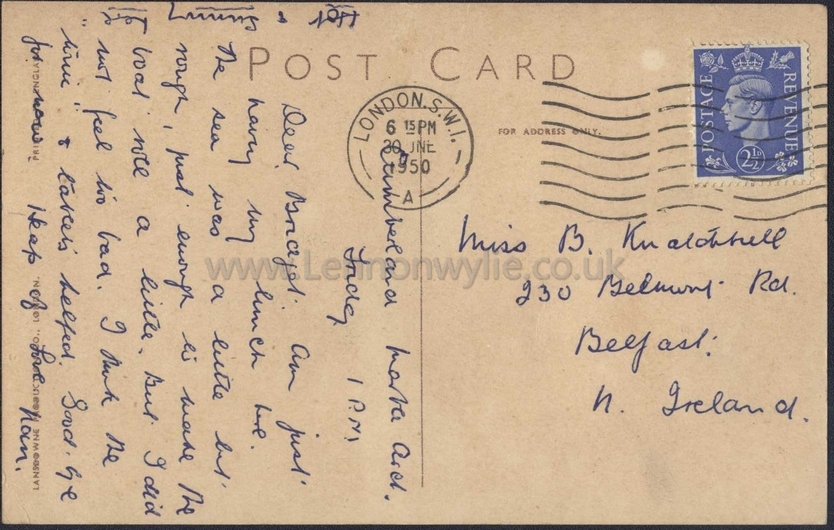 POST CARD
FOR ADDRESS ONLY.
LONDON. S.W.1.
6 15 PM
30 JNE
1950
A
POSTAGE
REVENUE
2½D
Miss B. Knatchbull
230 Belmont Rd.
Belfast.
N. Ireland.
Cumberland Marble Arch.
Friday 1 P.M.
Dear Bridget. Am just
having my lunch here.
The sea was a little bit
rough, just enough to make the
boat roll a little. But I did
not feel too bad. I think the
" & tablets helped. Good-bye
for now Heap of love Nan.
www.Lennonwylie.co.uk